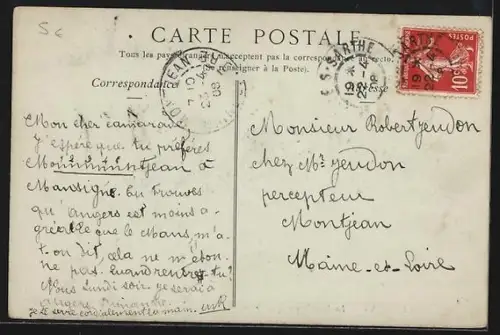 5c
CARTE POSTALE
Tous les pays étrangers n'acceptent pas la correspondance au recto
(Se renseigner à la Poste).
Correspondance
Adresse
POSTES
10c
Mon cher camarade
J'espère que tu préfères
Mouuuuuuntjean à
Mansigné. tu trouves
qu'Angers est moins a-
gréable que le Mans, m'a-
t-on dit, cela ne m'éton-
ne pas. Quand rentres-tu?
Nous lundi soir je serai à
angers dimanche.
Je te serre cordialement la main.
Monsieur Robert Jeudon
chez Mr Jeudon
percepteur
Montjean
Maine-et-Loire